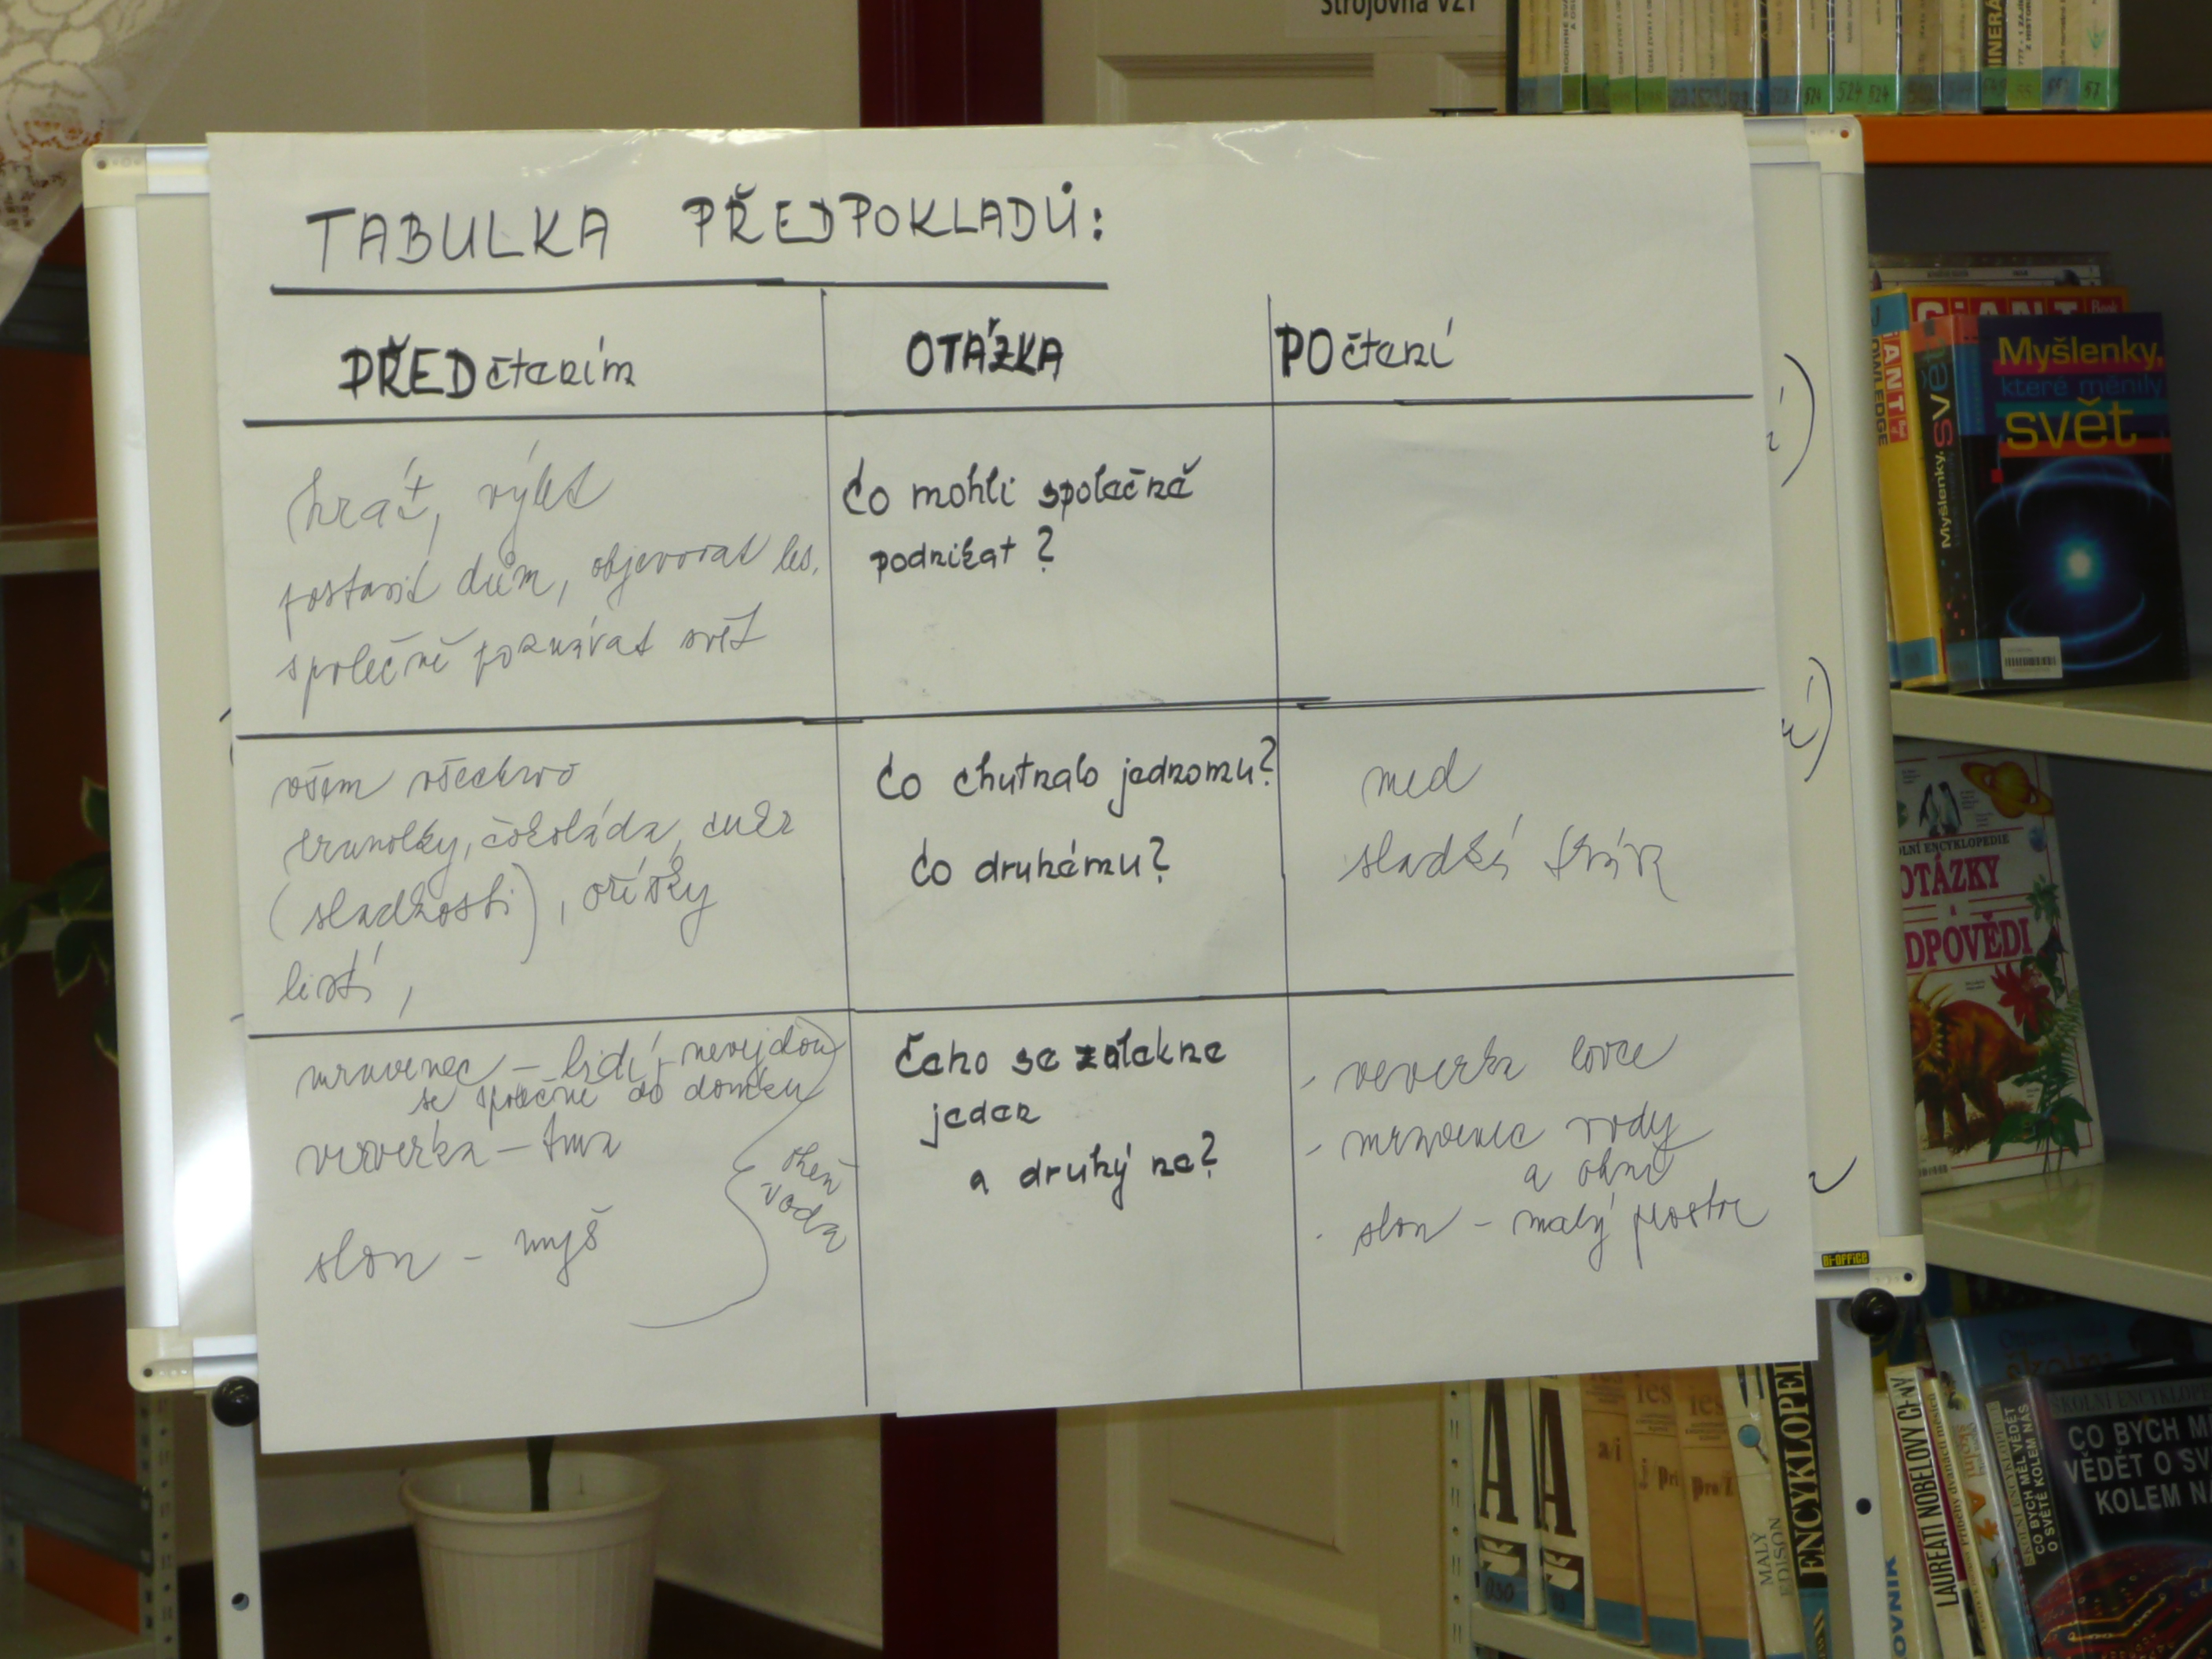 Strojovna VZT
TABULKA PŘEDPOKLADŮ:
PŘEDčtením
OTÁZKA
POčtení
hrát, výlet
postavit dům, objevovat les,
společně poznávat svět
Co mohli společně
podnikat?
všem všechno
bramborky, čokoláda, cukr
(sladkosti), oříšky
listí,
Co chutnalo jednomu?
Co druhému?
med
sladká
mravenec - lidí, nevejdou
se společně do domku
veverka - tma
slon - myš
oheň
voda
Čeho se zalekne
jeden
a druhý ne?
- veverka lovce
- mravenec vody
a ohně
- slon - malý prostor
Bi-OFFiCE
GiANT
Book
Myšlenky,
které měnily
svět
Myšlenky,
OTÁZKY
A
DPOVĚDI
A
A
ENCYKLOPE
MALÝ
EDISON
LAUREÁTI NOBELOVY CENY
OVNÍK
CO BYCH MĚL VĚDĚT
O SVĚTĚ KOLEM NÁS
CO BYCH M
VĚDĚT O SV
KOLEM NÁ